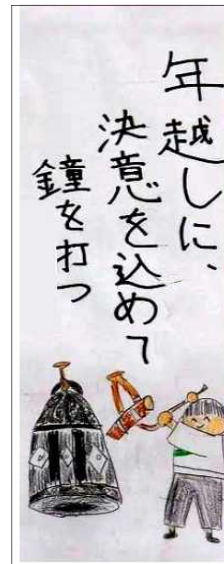 年越しに、
決意を込めて
鐘を打つ